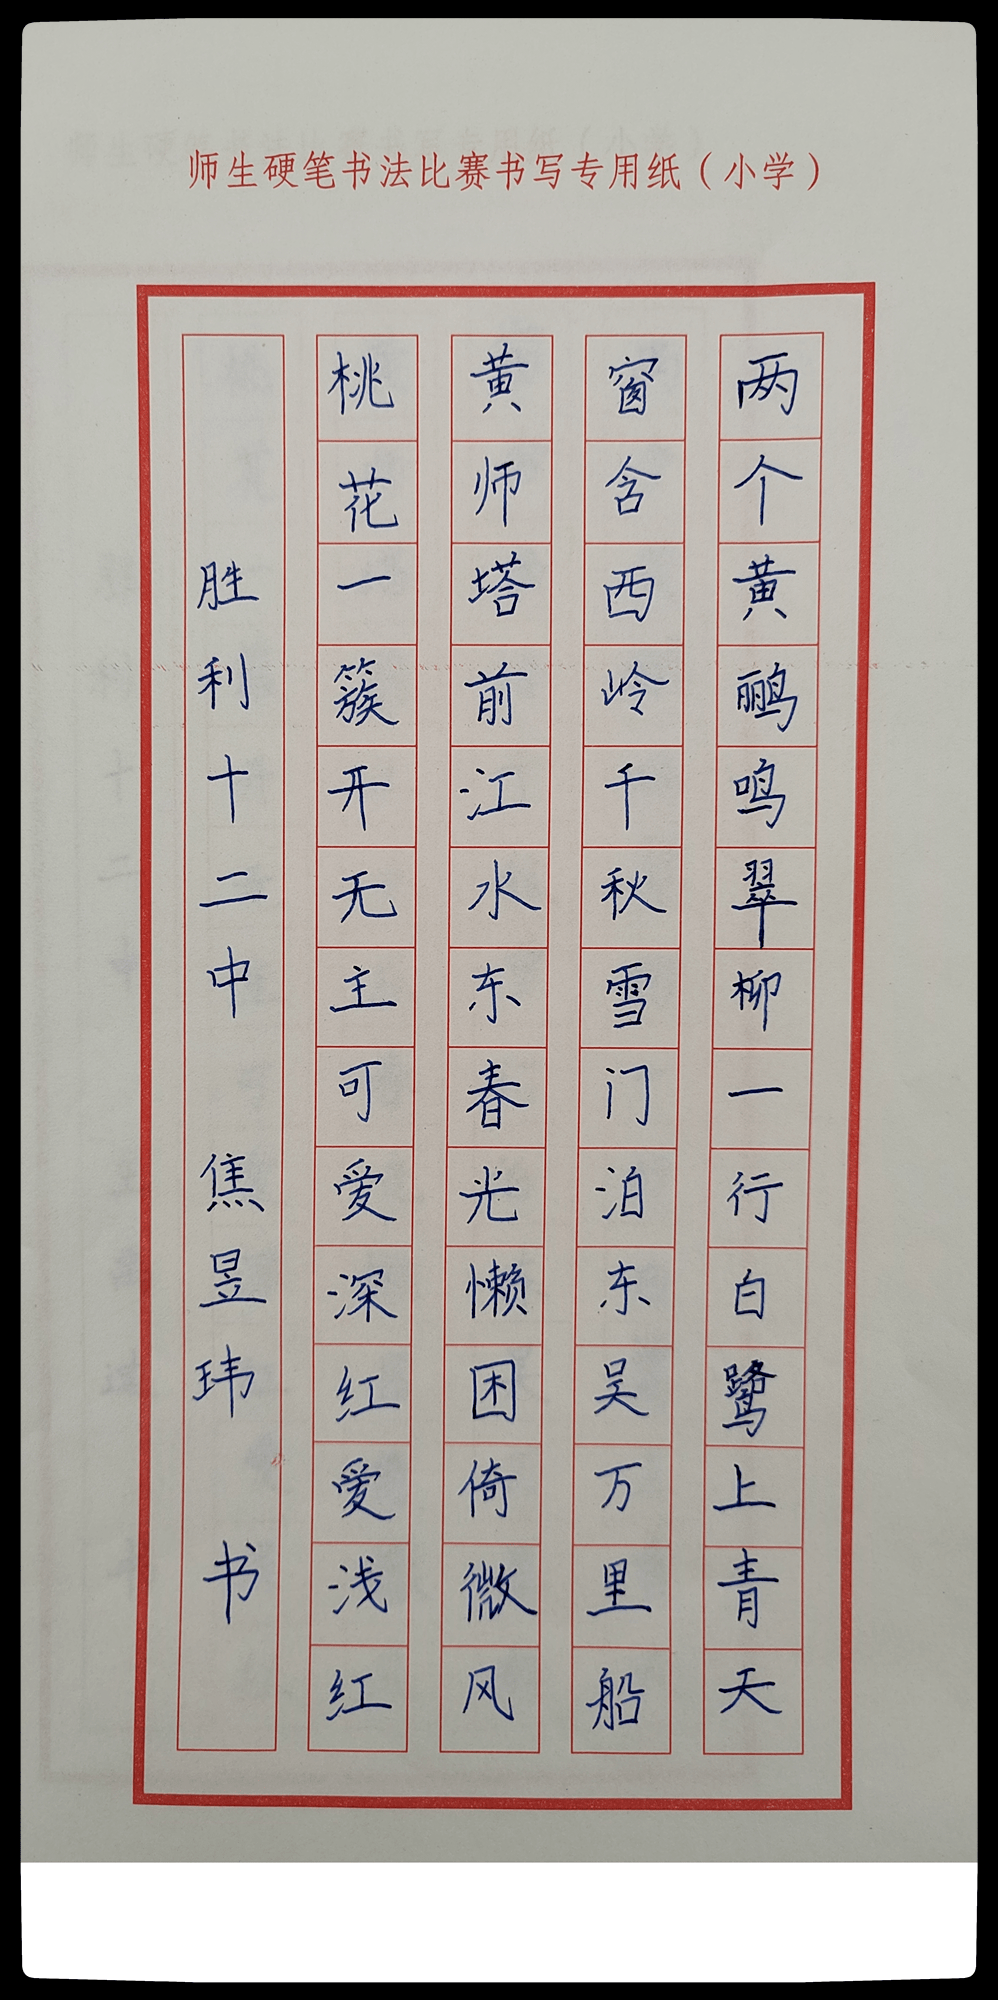 师生硬笔书法比赛书写专用纸（小学）
两个黄鹂鸣翠柳一行白鹭上青天
窗含西岭千秋雪门泊东吴万里船
黄师塔前江水东春光懒困倚微风
桃花一簇开无主可爱深红爱浅红
胜利十二中 焦昱玮 书